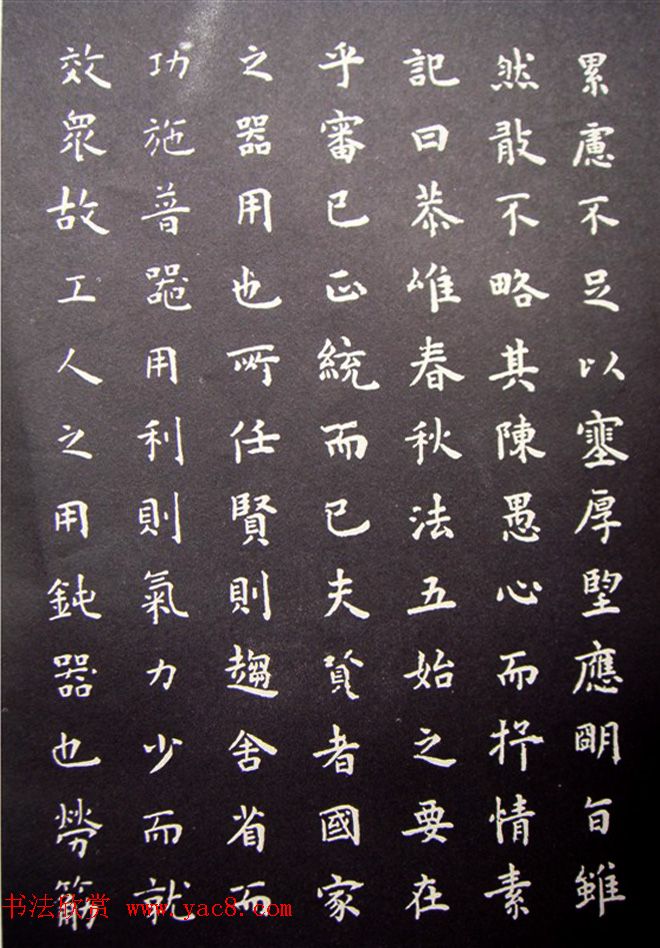 累慮不足以塞厚望應明旨雖
然敢不略其陳愚心而抒情素
記曰恭惟春秋法五始之要在
乎審已正統而已夫賢者國家
之器用也所任賢則趨舍省而
功施普器用利則氣力少而就
效衆故工人之用鈍器也勞筋
书法欣赏 www.yac8.com